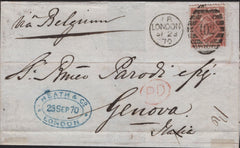 via Belgium
LONDON
SP 23
70
Sr. Ameo Parodi
Genova
Italia
HEATH & CO
23 SEP 70
LONDON
PD